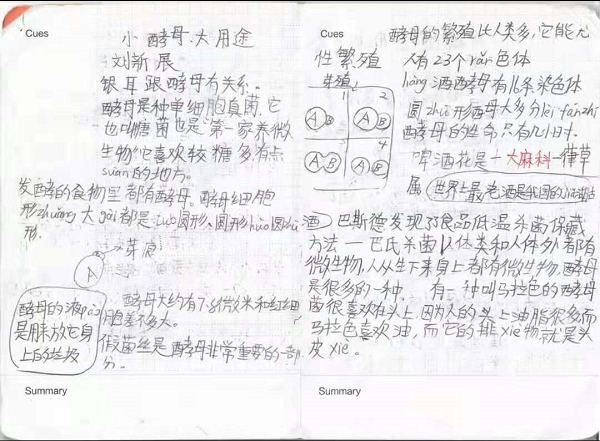 Cues
小酵母大用途
刘新展
银耳跟酵母有关系。
酵母是种单细胞真菌,它
也叫糖菌也是第一家养微
生物它喜欢较糖多有点
suān的地方。
发酵的食物里都有酵母。酵母细胞
形zhuàng大gài都是tuǒ圆形、圆形huò圆zhù
形.
芽痕
A
酵母的液pào
是用来放它身
上的垃圾
酵母大约有7-8微米和红细
胞差不多大。
假菌丝是酵母非常重要的一部
分.
Summary
Cues
酵母的繁殖比人类多,它能无
性繁殖
人有23个rǎn色体
芽殖
niàng酒酵母有16条染色体
1
A B
2
A B
3
A B
4
A B
圆zhù形酉母大多分liè fán zhí
酵母的生命只有几小时.
啤酒花是一大麻科一葎草
属
世界上最老酒是我国的
酒
巴斯德发现了食品低温杀菌保藏
方法一巴氏杀菌从体类和人体外都有
微生物,人从生下来身上都有微生物.酵母
是很多的一种. 有一种叫马拉色的酵母
菌很喜欢在头上因为人的头上油脂很多而
马拉色喜欢油,而它的排xiè物就是头
皮xiè.
Summary